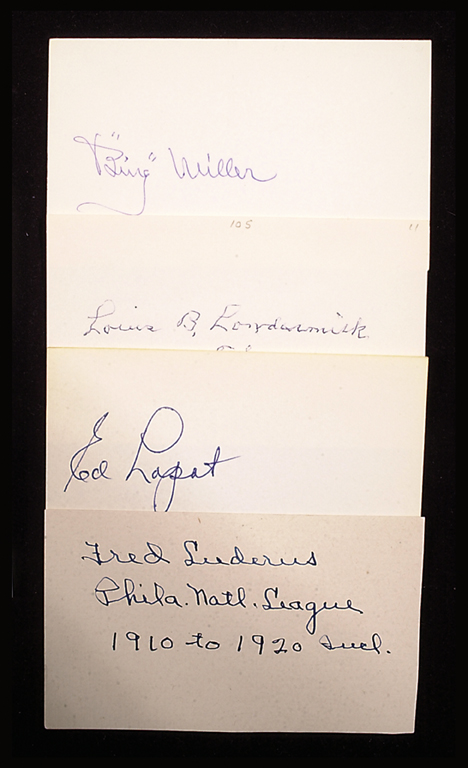 "Bing" Miller
105 11
Louis B. Lowdermilk
Ed Lopat
Fred Luderus
Phila. Natl. League
1910 to 1920 incl.